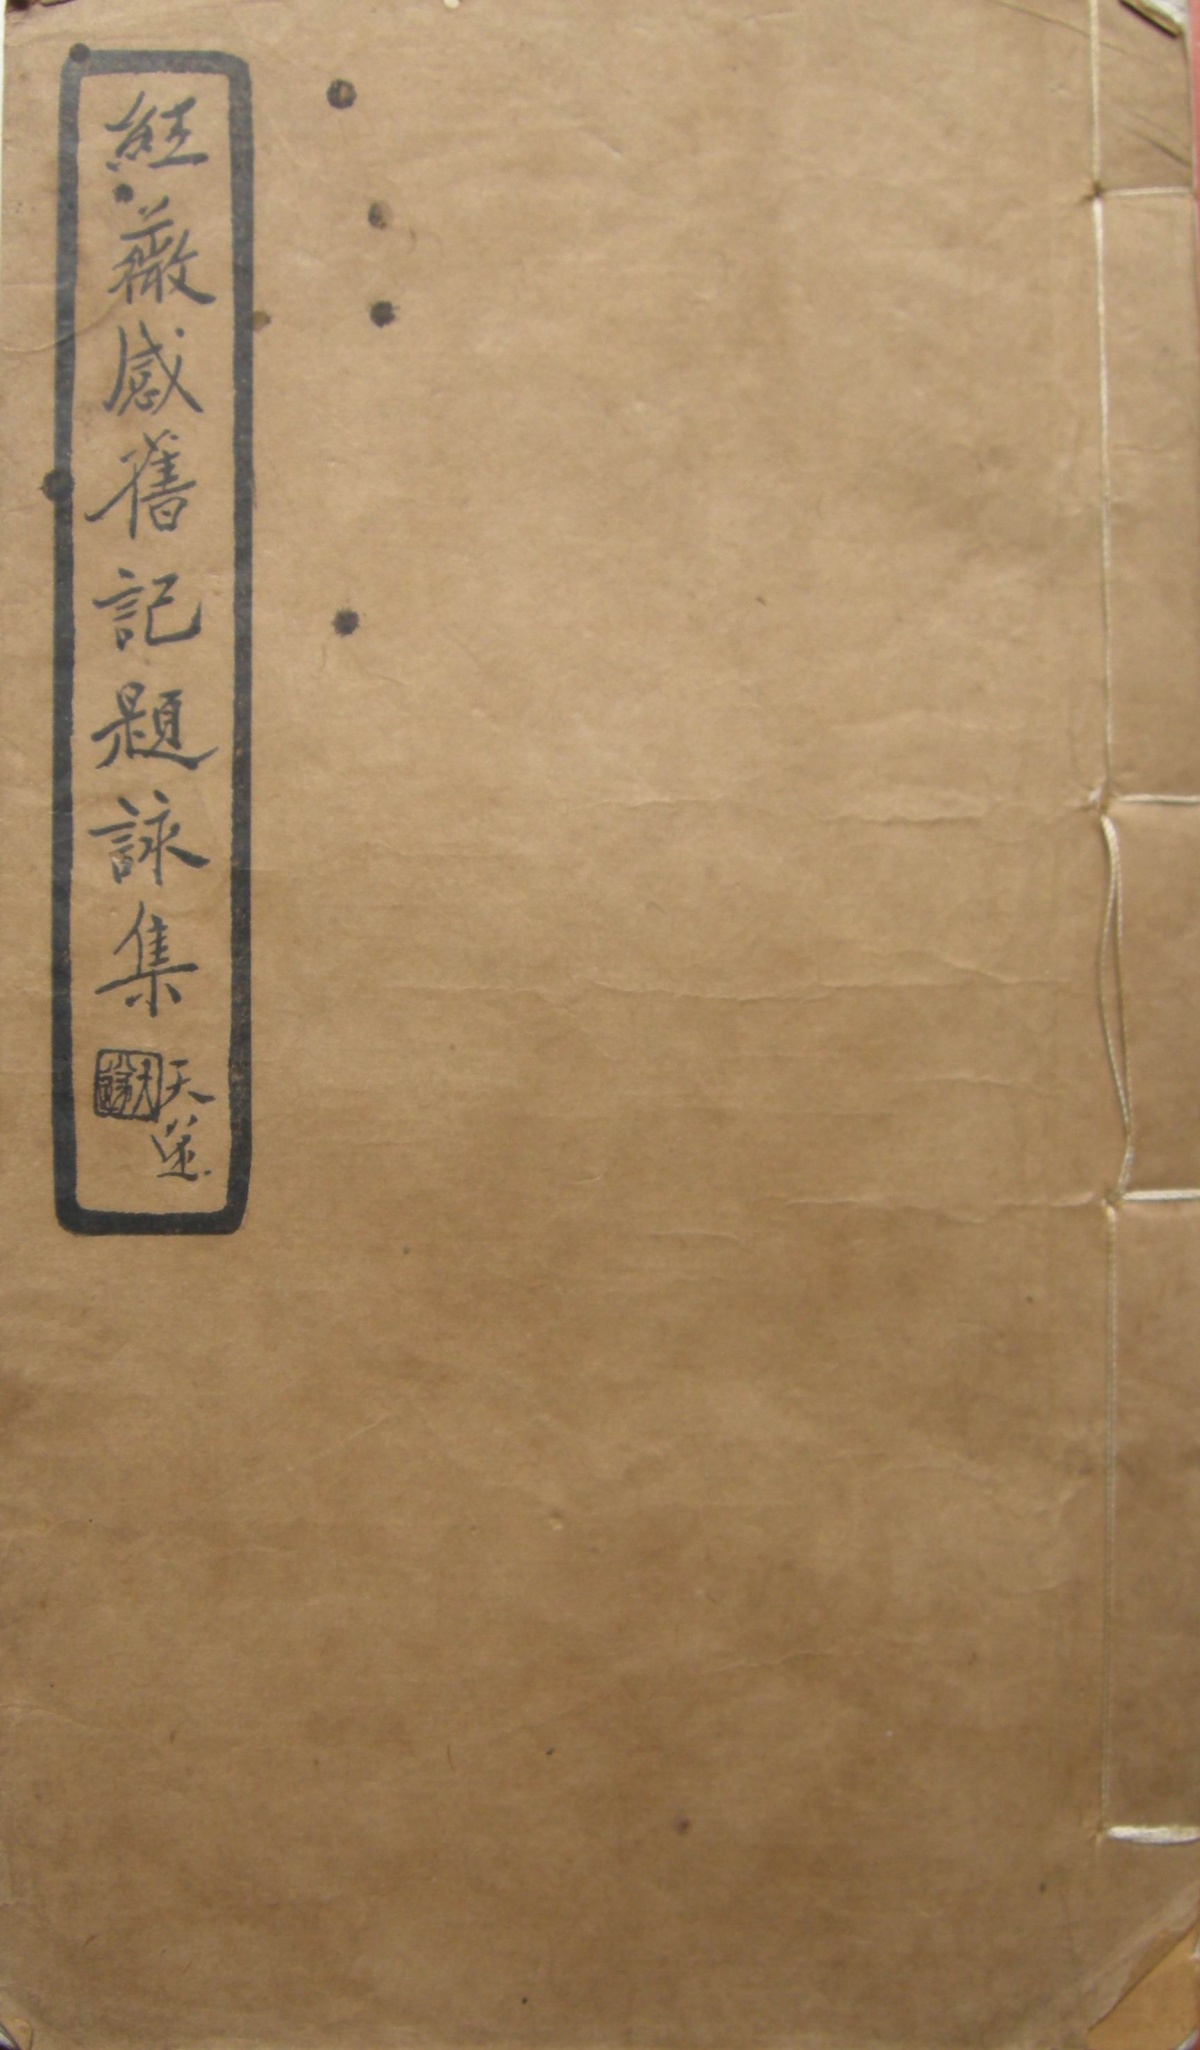 紅薇感舊記題詠集
天遂